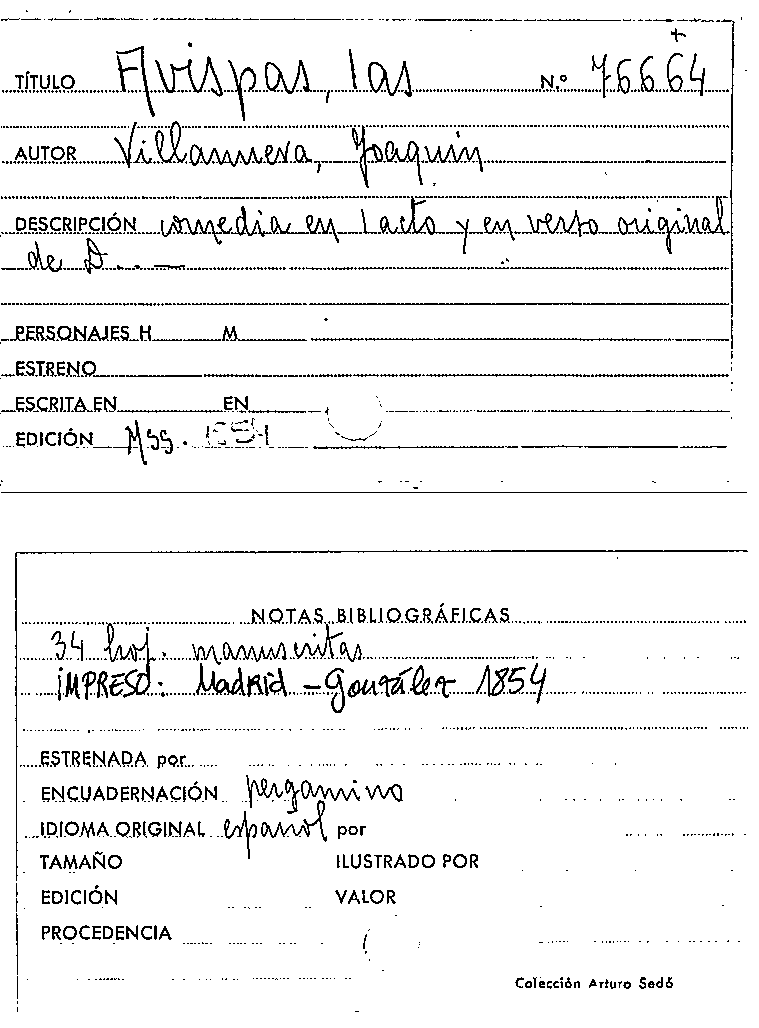 +
TÍTULO Avispas, las N.º 76664
AUTOR Villanueva, Joaquín
DESCRIPCIÓN comedia en 1 acto y en verso original
de D...—
PERSONAJES H M
ESTRENO
ESCRITA EN EN
EDICIÓN Mss. 1854
NOTAS BIBLIOGRÁFICAS
34 hoj. manuscritas
IMPRESO: Madrid - González 1854
ESTRENADA por
ENCUADERNACIÓN pergamino
IDIOMA ORIGINAL español por
TAMAÑO ILUSTRADO POR
EDICIÓN VALOR
PROCEDENCIA
Colección Arturo Sedó